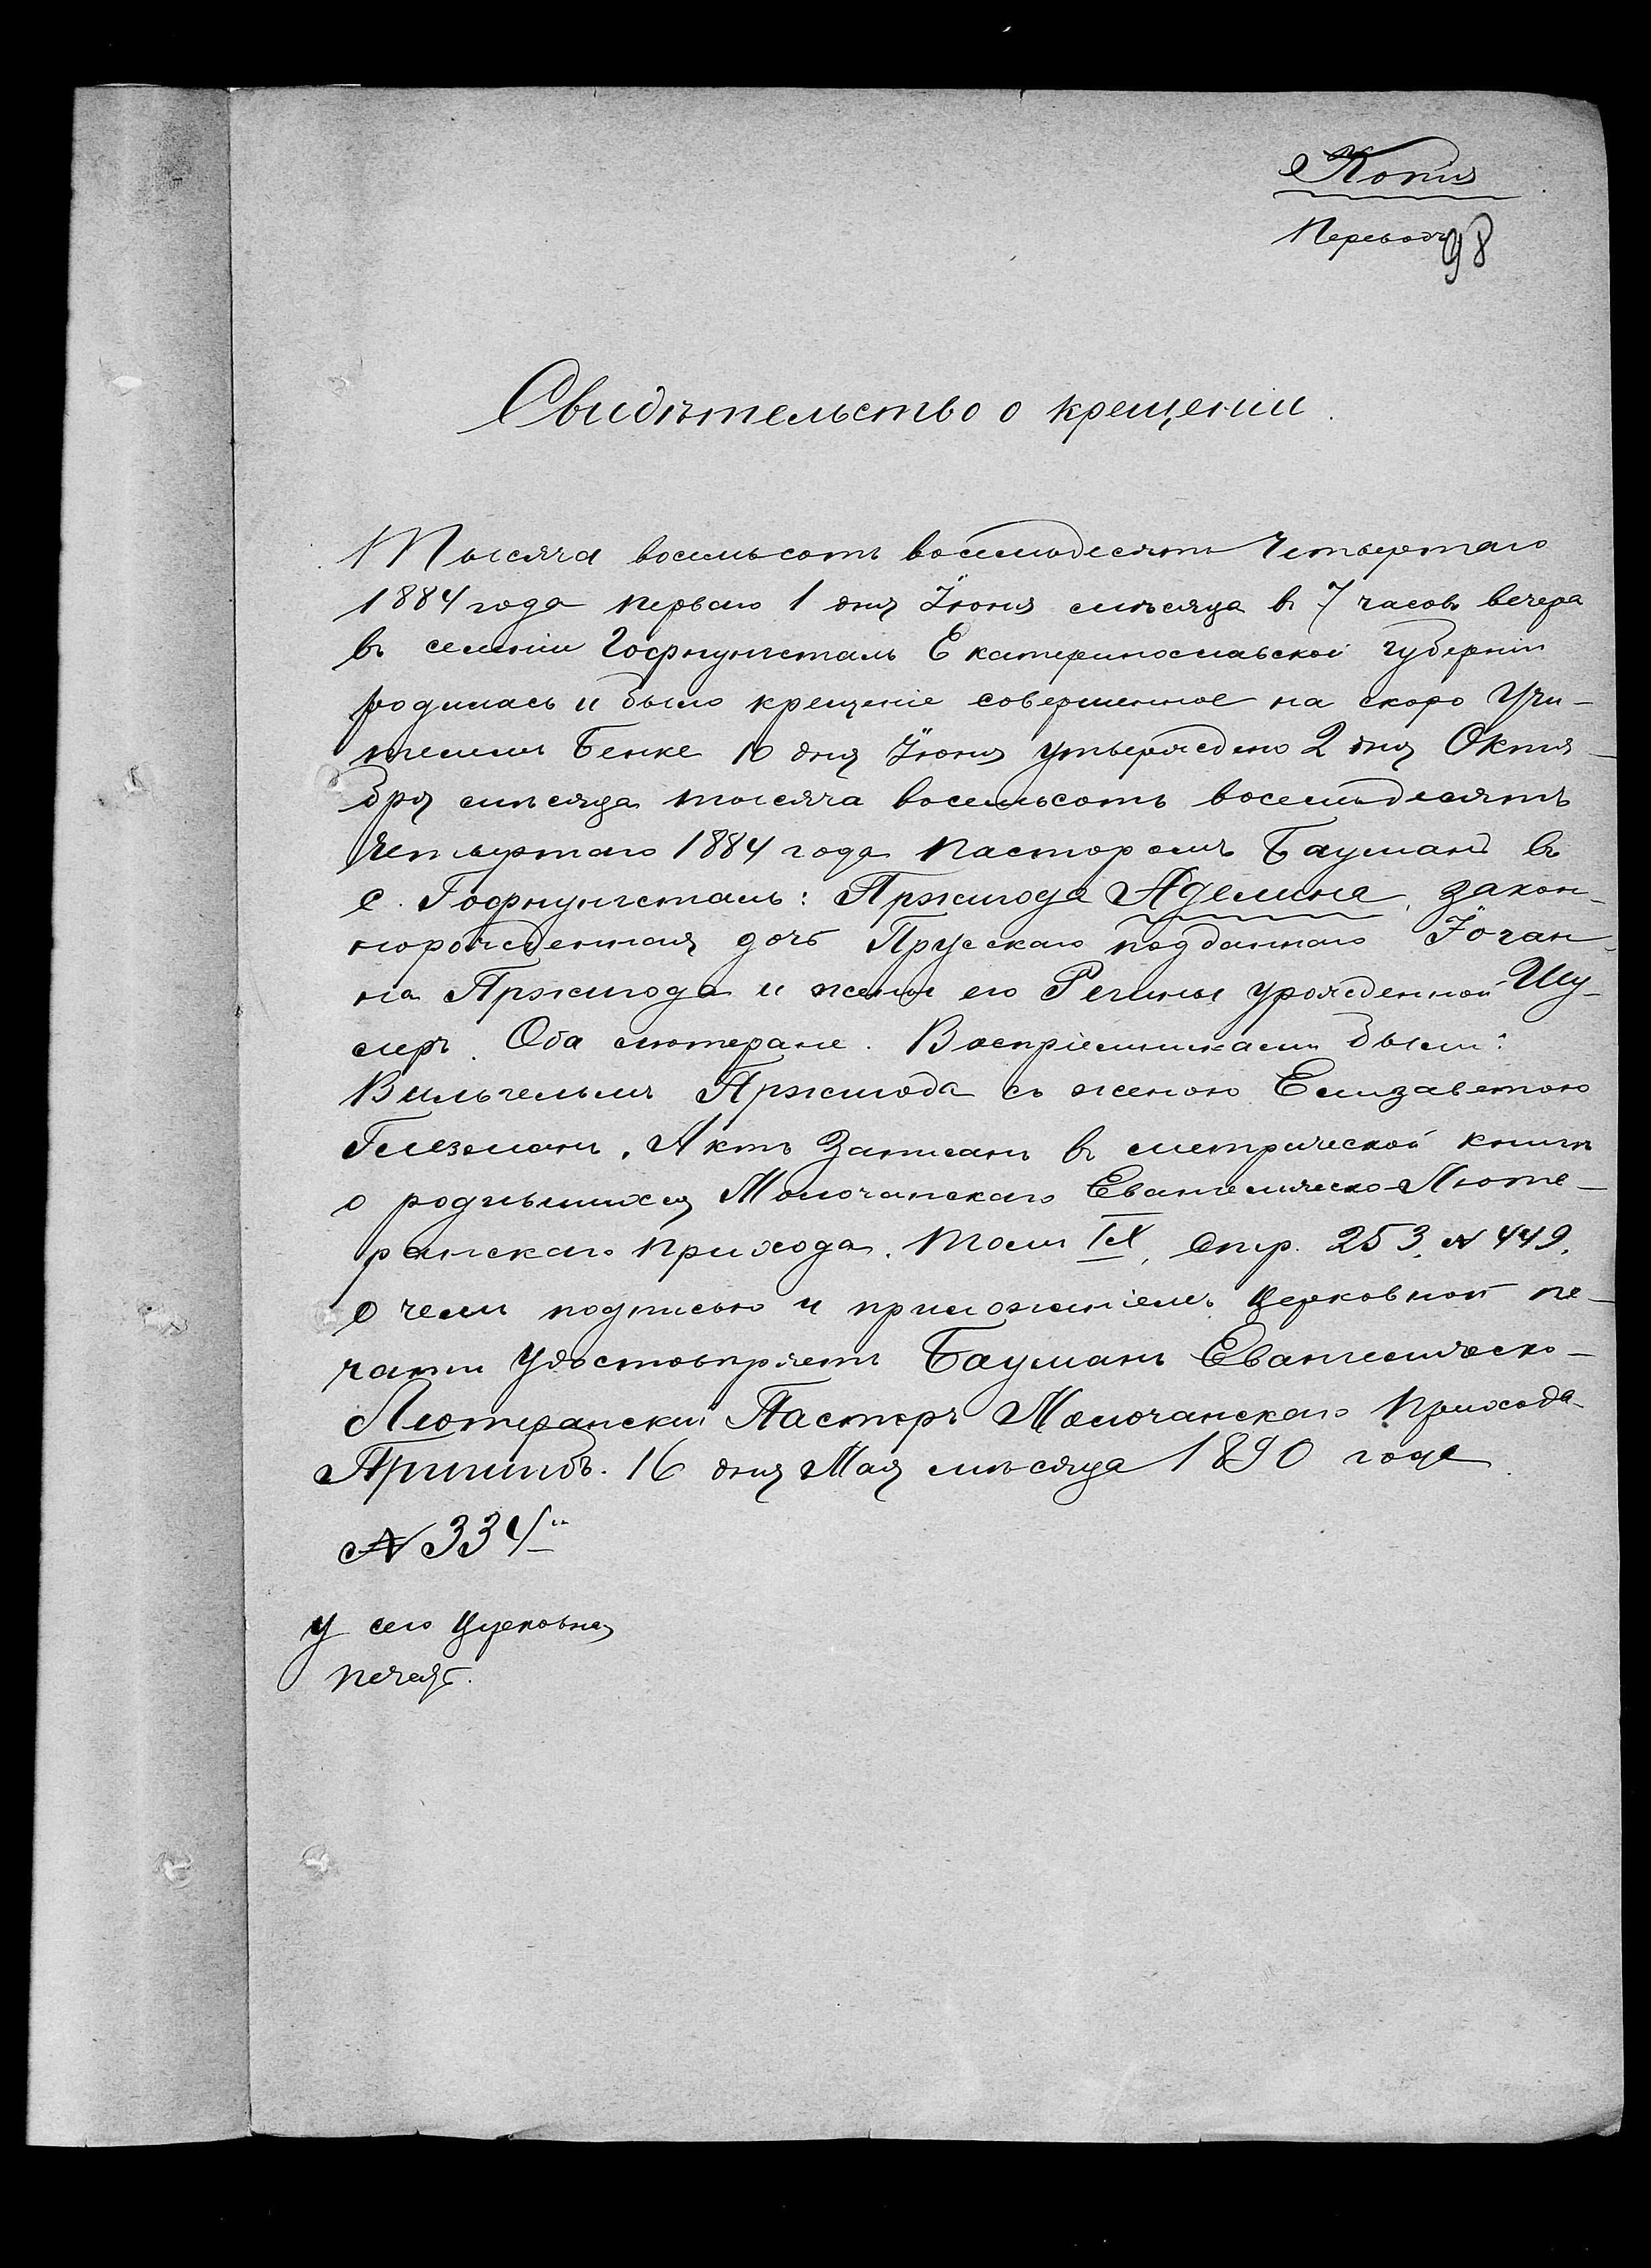 Копія
Переводъ
98
Свидѣтельство о крещеніи.
Тысяча восемьсотъ восемьдесятъ Четвертаго
1884 года перваго 1 дня Іюня мѣсяца въ 7 часовъ вечера
въ селеніи Гофнунгсталь Екатеринославской губерніи
родилась и было крещеніе совершенное на скоро Учи-
телемъ Бенке 10 дня Іюня утверждено 2 дня Октя-
бря мѣсяца тысяча восемьсотъ восемьдесятъ
Четвертаго 1884 года Пасторомъ Бауманъ въ
с. Гофнунгсталь: Пржигода Аделина, закон-
норожденная дочь Прусскаго подданнаго Іоган-
на Пржигода и жены его Регины урожденной Шу-
меръ. Оба лютеране. Воспріемниками были:
Вильгельмъ Пржигода съ женою Елизаветою
Глезманъ. Актъ Записанъ въ метрической книгѣ
о родившихся Молочанскаго Евангелическо-Люте-
ранскаго прихода. Томъ IX, стр. 253. № 449.
О чемъ подписью и приложеніемъ Церковной пе-
чати Удостовѣряетъ Бауманъ Евангелическо-
Лютеранскій Пасторъ Молочанскаго прихода
Пришибъ. 16 дня Мая мѣсяца 1890 года
№ 334
У сего Церковная
печать.